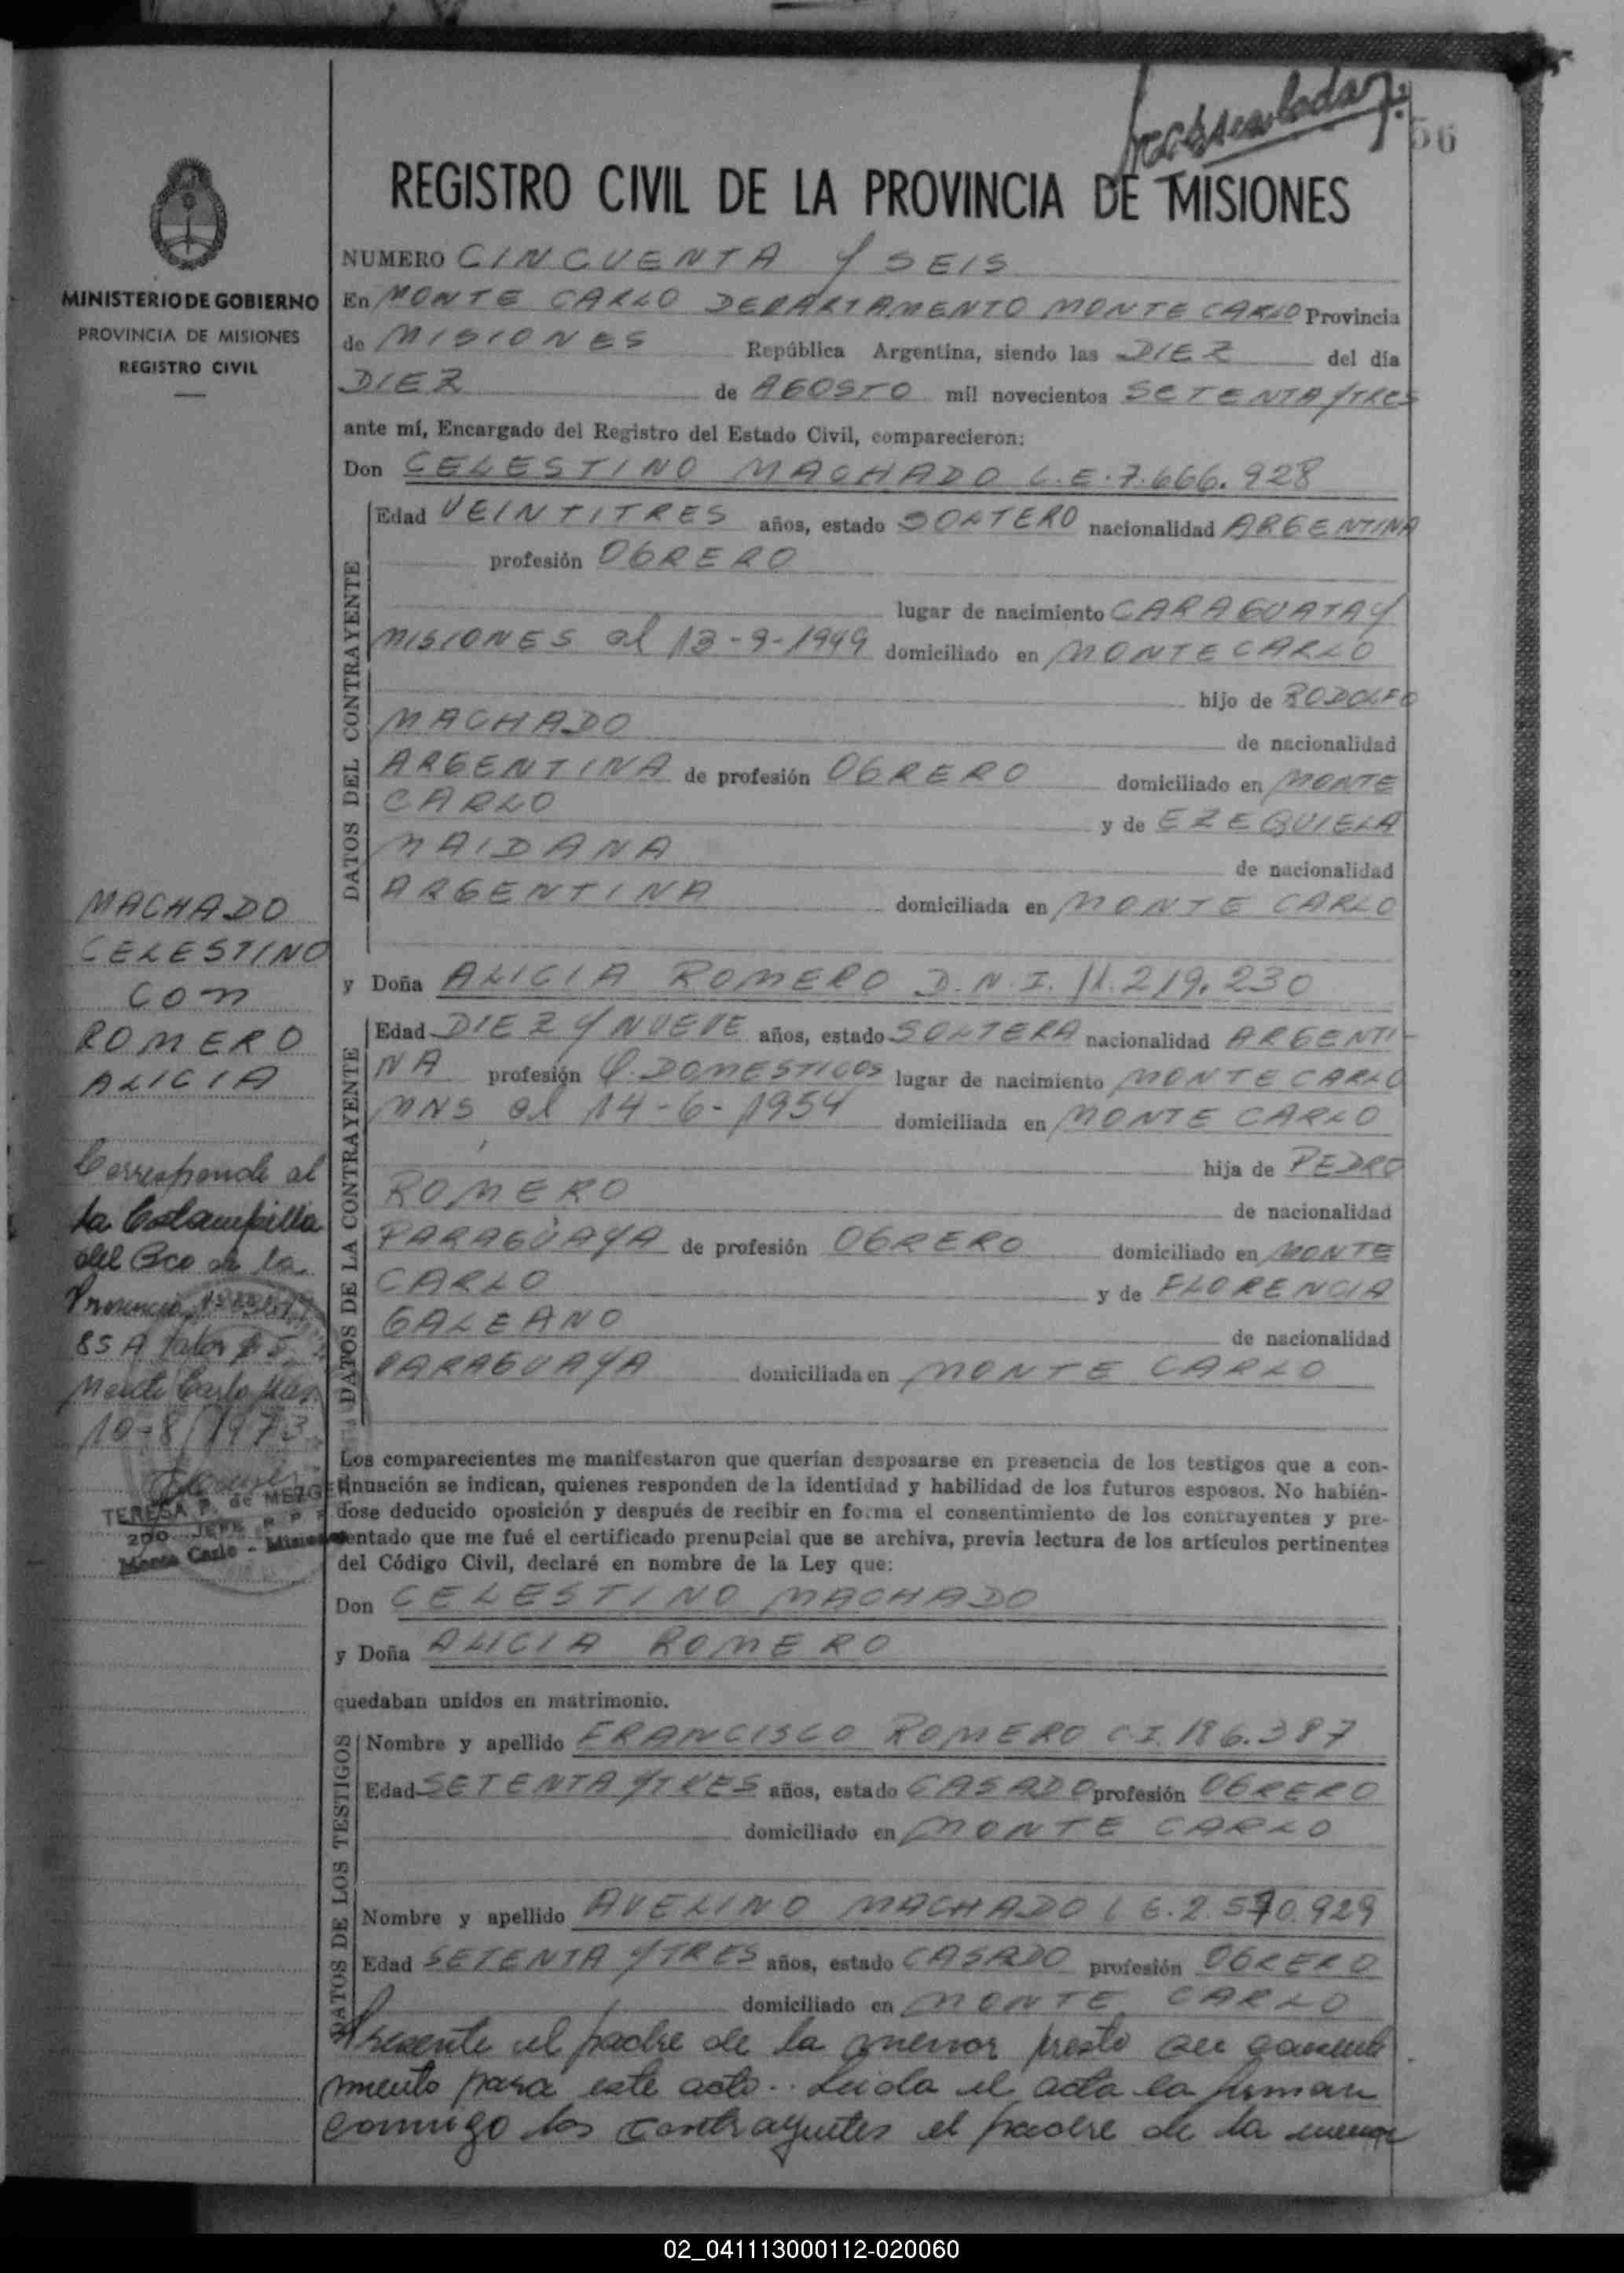 56
REGISTRO CIVIL DE LA PROVINCIA DE MISIONES
MINISTERIO DE GOBIERNO
PROVINCIA DE MISIONES
REGISTRO CIVIL
NUMERO CINCUENTA Y SEIS
En MONTE CARLO DEPARTAMENTO MONTE CARLO Provincia
de MISIONES República Argentina, siendo las DIEZ del día
DIEZ de AGOSTO mil novecientos SETENTA Y TRES
ante mí, Encargado del Registro del Estado Civil, comparecieron:
Don CELESTINO MACHADO L.E. 7.666.928
DATOS DEL CONTRAYENTE
Edad VEINTITRES años, estado SOLTERO nacionalidad ARGENTINA
profesión OBRERO
lugar de nacimiento CARAGUATAY
MISIONES el 13-9-1949 domiciliado en MONTE CARLO
hijo de RODOLFO
MACHADO de nacionalidad
ARGENTINA de profesión OBRERO domiciliado en MONTE
CARLO y de EZEQUIELA
MAIDANA de nacionalidad
ARGENTINA domiciliada en MONTE CARLO
MACHADO
CELESTINO
con
ROMERO
ALICIA
y Doña ALICIA ROMERO D.N.I. 11.219.230
DATOS DE LA CONTRAYENTE
Edad DIEZ Y NUEVE años, estado SOLTERA nacionalidad ARGENTI-
NA profesión Q. DOMESTICOS lugar de nacimiento MONTE CARLO
MNS el 14-6-1954 domiciliada en MONTE CARLO
hija de PEDRO
ROMERO de nacionalidad
PARAGUAYA de profesión OBRERO domiciliado en MONTE
CARLO y de FLORENCIA
GALEANO de nacionalidad
PARAGUAYA domiciliada en MONTE CARLO
Corresponde al
la Estampilla
del Bco de la
Provincia
85 A Valor $ 5
Monte Carlo Mns.
10-8/1973
TERESA P. de
200 JEFE R. P.
Monte Carlo - Misiones
Los comparecientes me manifestaron que querían desposarse en presencia de los testigos que a con-
tinuación se indican, quienes responden de la identidad y habilidad de los futuros esposos. No habién-
dose deducido oposición y después de recibir en forma el consentimiento de los contrayentes y pre-
sentado que me fué el certificado prenupcial que se archiva, previa lectura de los artículos pertinentes
del Código Civil, declaré en nombre de la Ley que:
Don CELESTINO MACHADO
y Doña ALICIA ROMERO
quedaban unidos en matrimonio.
DATOS DE LOS TESTIGOS
Nombre y apellido FRANCISCO ROMERO C.I. 186.387
Edad SETENTA Y TRES años, estado CASADO profesión OBRERO
domiciliado en MONTE CARLO
Nombre y apellido AVELINO MACHADO L E. 2.570.929
Edad SETENTA Y TRES años, estado CASADO profesión OBRERO
domiciliado en MONTE CARLO
Presente el padre de la menor presto su consenti
miento para este acto.. Leida el acta la firman
conmigo los contrayentes el padre de la menor
02_041113000112-020060